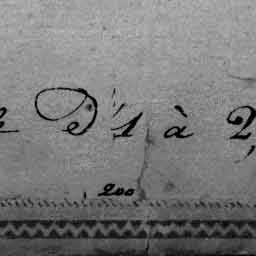 D'1 à 2
200